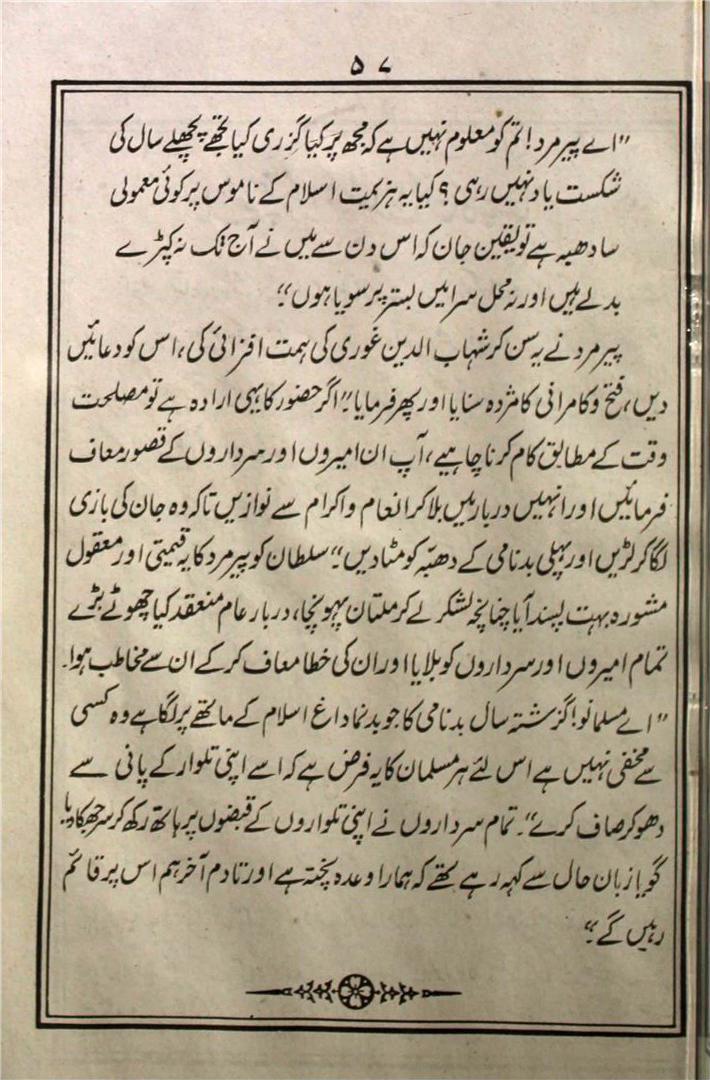 ۵۷
"اے پیر مرد! تم کو معلوم نہیں ہے کہ مجھ پر کیا گزری کیا تجھے پچھلے سال کی
شکست یاد نہیں رہی؟ کیا یہ ہزیمت اسلام کے ناموس پر کوئی معمولی
سا دھبہ ہے تو یقین جان کہ اس دن سے میں نے آج تک نہ کپڑے
بدلے ہیں اور نہ محل سرا میں بستر پر سویا ہوں"
پیر مرد نے یہ سن کر شہاب الدین غوری کی ہمت افزائی کی، اس کو دعائیں
دیں، فتح و کامرانی کا مژدہ سنایا اور پھر فرمایا "اگر حضور کا یہی ارادہ ہے تو مصلحت
وقت کے مطابق کام کرنا چاہیے، آپ ان امیروں اور سرداروں کے قصور معاف
فرمائیں اور انہیں دربار میں بلا کر انعام و اکرام سے نوازیں تاکہ وہ جان کی بازی
لگا کر لڑیں اور پہلی بدنامی کے دھبّہ کو مٹا دیں" سلطان کو پیر مرد کا یہ قیمتی اور معقول
مشورہ بہت پسند آیا چنانچہ لشکر لے کر ملتان پہونچا، دربار عام منعقد کیا چھوٹے بڑے
تمام امیروں اور سرداروں کو بلایا اور ان کی خطا معاف کر کے ان سے مخاطب ہوا۔
"اے مسلمانو! گزشتہ سال بدنامی کا جو بدنما داغ اسلام کے ماتھے پر لگا ہے وہ کسی
سے مخفی نہیں ہے اس لئے ہر مسلمان کا یہ فرض ہے کہ اسے اپنی تلوار کے پانی سے
دھو کر صاف کرے"۔ تمام سرداروں نے اپنی تلواروں کے قبضوں پر ہاتھ رکھ کر سر جھکا دیا۔
گویا زبان حال سے کہہ رہے تھے کہ ہمارا وعدہ پختہ ہے اور تادم آخر ہم اس پر قائم
رہیں گے"